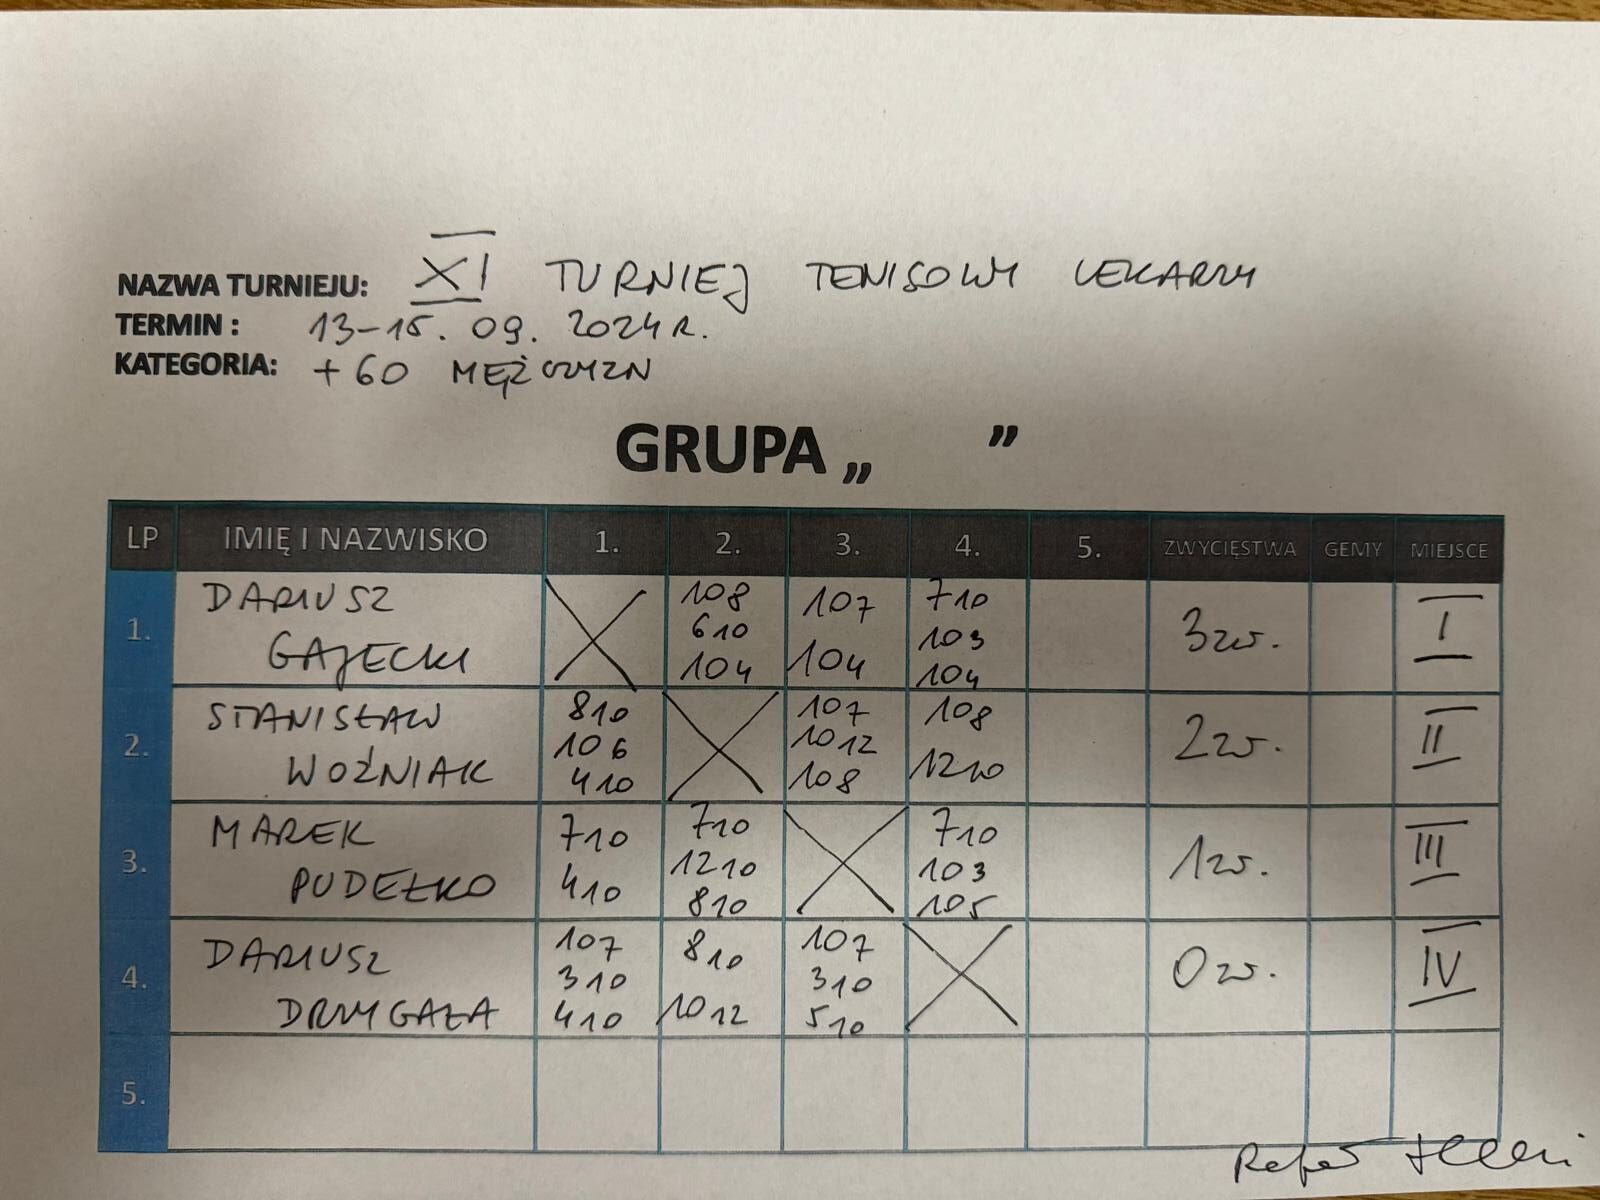 NAZWA TURNIEJU: XI TURNIEJ TENISOWY LEKARZY
TERMIN : 13-15. 09. 2024 R.
KATEGORIA: +60 MĘŻCZYZN
GRUPA „ ”
LP IMIĘ I NAZWISKO 1. 2. 3. 4. 5. ZWYCIĘSTWA GEMY MIEJSCE
1. DARIUSZ GAJECKI 108 610 104 107 104 710 103 104 3zw. I
2. STANISŁAW WOŹNIAK 810 106 410 107 1012 108 108 1210 2zw. II
3. MAREK PUDEŁKO 710 410 710 1210 810 710 103 105 1zw. III
4. DARIUSZ DRZYGAŁA 107 310 410 810 1012 107 310 510 0zw. IV
5.